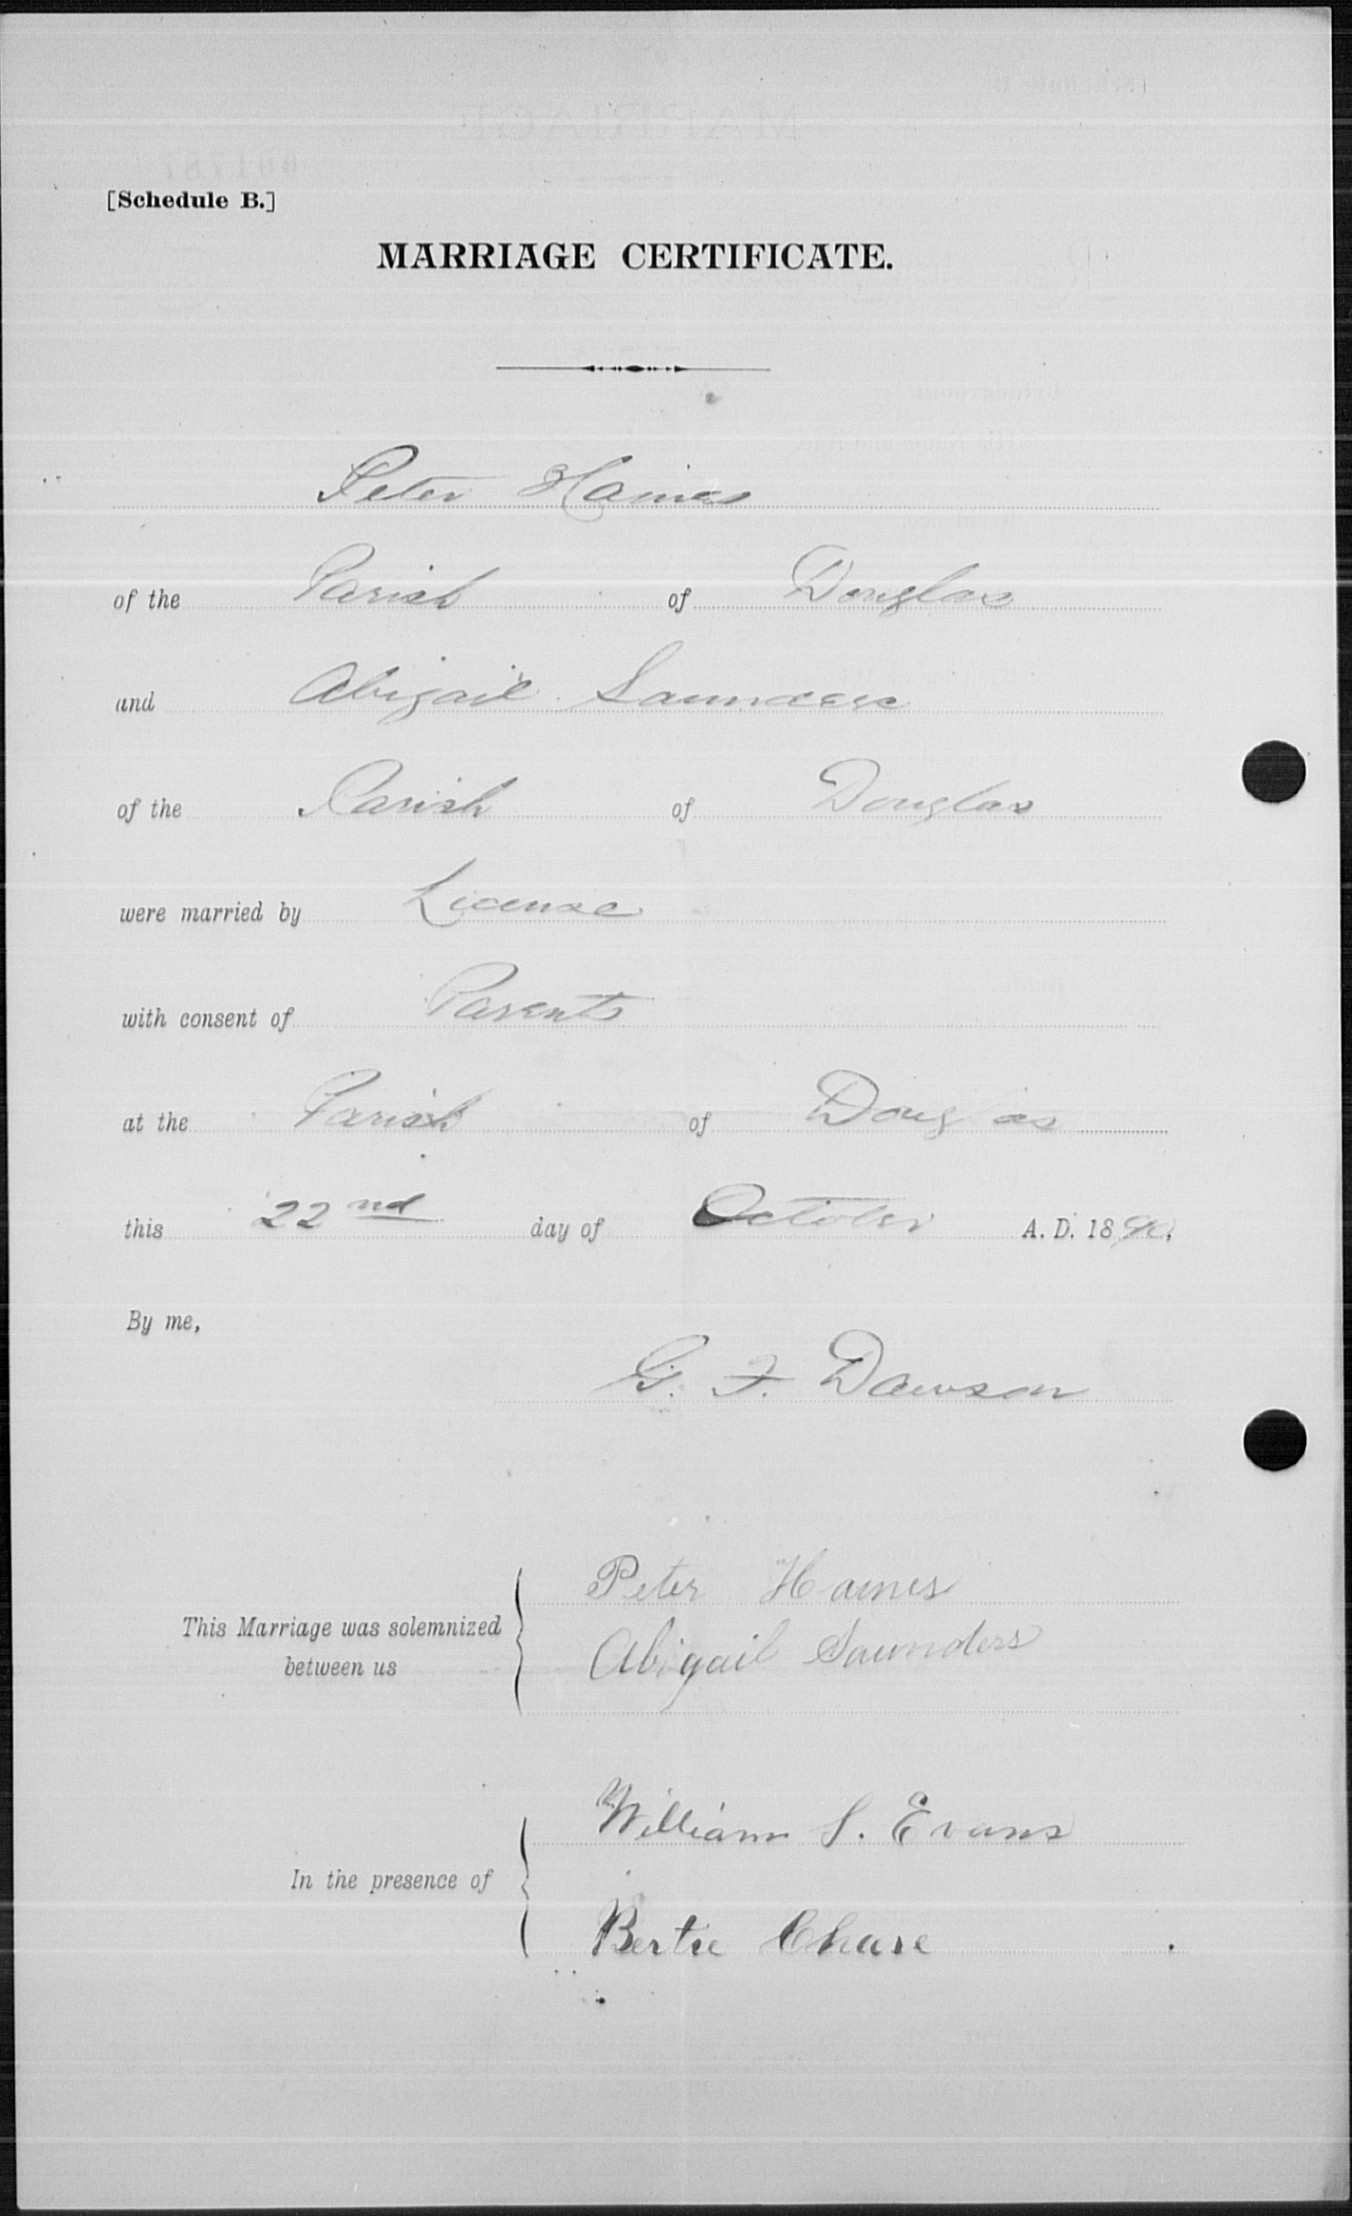 [Schedule B.]
MARRIAGE CERTIFICATE.
Peter Haines
of the Parish of Douglas
and Abigail Saunders
of the Parish of Douglas
were married by License
with consent of Parents
at the Parish of Douglas
this 22nd day of October A. D. 1890.
By me,
G. F. Dawson
Peter Haines
This Marriage was solemnized
Abigail Saunders
between us
William S. Evans
In the presence of
Bertie Chase